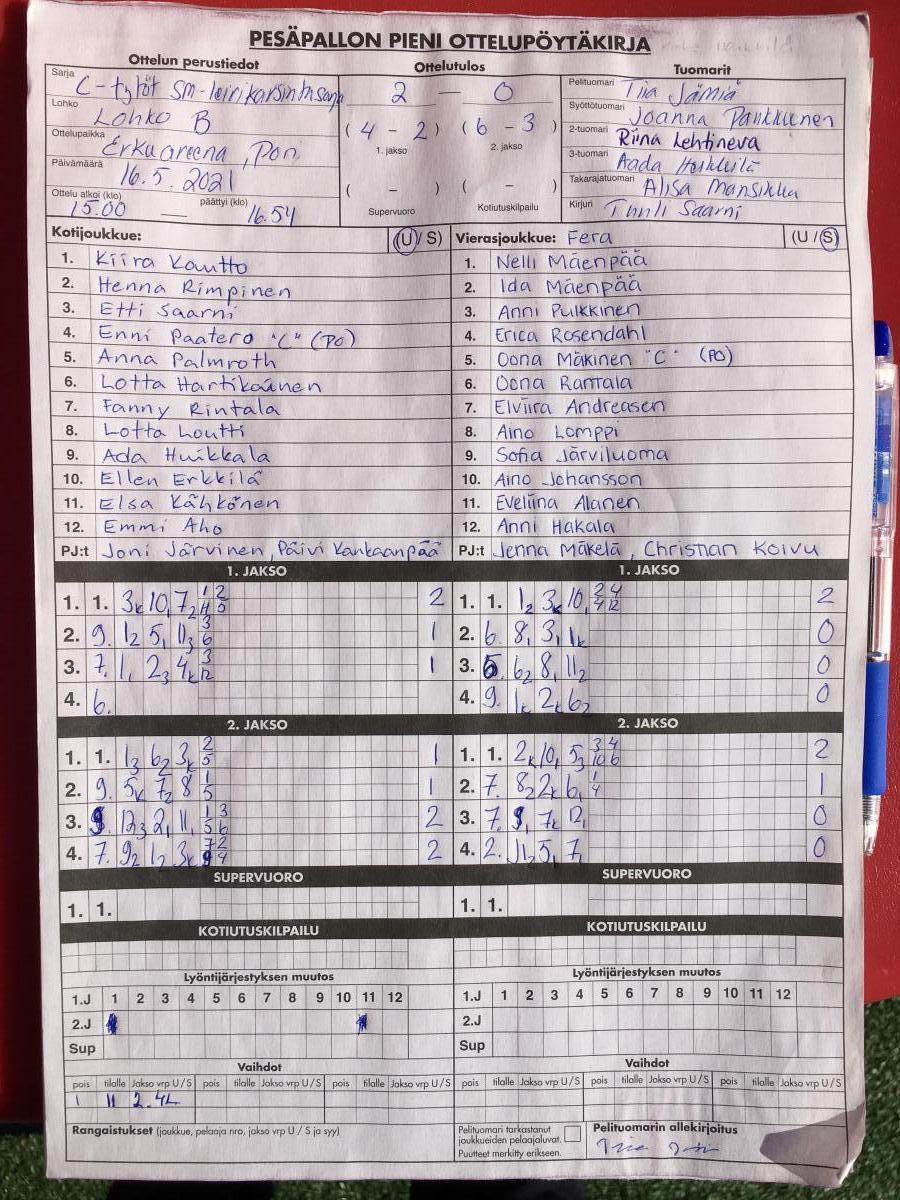 PESÄPALLON PIENI OTTELUPÖYTÄKIRJA
Ottelun perustiedot
Sarja C-tytöt SM-leirikarsintasarja
Lohko Lohko B
Ottelupaikka Erkuareena, Pori
Päivämäärä 16.5.2021
Ottelu alkoi (klo) 15.00 — päättyi (klo) 16.54
Ottelutulos
2 — 0
(4 - 2) (6 - 3)
1. jakso 2. jakso
( - ) ( - )
Supervuoro Kotiutuskilpailu
Tuomarit
Pelituomari Tiia Jämiä
Syöttötuomari Joanna Paukkunen
2-tuomari Riina Lehtineva
3-tuomari Aada
Takarajatuomari Alisa Mansikka
Kirjuri Tuuli Saarni
Kotijoukkue: (U / S)
1. Kiira Kautto
2. Henna Rimpinen
3. Etti Saarni
4. Enni Paatero "C" (PO)
5. Anna Palmroth
6. Lotta Hartikainen
7. Fanny Rintala
8. Lotta Loutti
9. Ada Huikkala
10. Ellen Erkkilä
11. Elsa Kähkönen
12. Emmi Aho
PJ:t Joni Järvinen, Päivi Kankaanpää
Vierasjoukkue: Fera (U / S)
1. Nelli Mäenpää
2. Ida Mäenpää
3. Anni Pulkkinen
4. Erica Rosendahl
5. Oona Mäkinen "C" (PO)
6. Oona Rantala
7. Elviira Andreasen
8. Aino Lomppi
9. Sofia Järviluoma
10. Aino Johansson
11. Eveliina Alanen
12. Anni Hakala
PJ:t Jenna Mäkelä, Christian Koivu
1. JAKSO
1. 1. 3k 10, 7₂ 1/11 2/5 2
2. 9. 1₂ 5, 11₃ 3/6 1
3. 7. 1, 2₃ 4k 3/12 1
4. 6.
1. JAKSO
1. 1. 1₂ 3k 10, 2/4 4/12 2
2. 6. 8, 3, 1k 0
3. 5. 6₂ 8, 11₂ 0
4. 9. 1k 2k 6₂ 0
2. JAKSO
1. 1. 1₃ 6₂ 3k 2/5 1
2. 9. 5k 7₂ 8 1/5 1
3. 9. 12₃ 2, 11, 1/5 3/6 2
4. 7. 9₂ 1₂ 3k 7/9 2/4 2
2. JAKSO
1. 1. 2k 10, 5₃ 3/10 4/6 2
2. 7. 8₂ 2k 6, 1/4 1
3. 7. 9, 7k 12, 0
4. 2. 11₂ 5, 7, 0
SUPERVUORO
1. 1.
SUPERVUORO
1. 1.
KOTIUTUSKILPAILU
KOTIUTUSKILPAILU
Lyöntijärjestyksen muutos
1.J 1 2 3 4 5 6 7 8 9 10 11 12
2.J
Sup
Lyöntijärjestyksen muutos
1.J 1 2 3 4 5 6 7 8 9 10 11 12
2.J
Sup
Vaihdot
pois tilalle Jakso vrp U / S pois tilalle Jakso vrp U / S pois tilalle Jakso vrp U / S
1 11 2.4L
Vaihdot
pois tilalle Jakso vrp U / S pois tilalle Jakso vrp U / S pois tilalle Jakso vrp U / S
Rangaistukset (joukkue, pelaaja nro, jakso vrp U / S ja syy)
Pelituomari tarkastanut
joukkueiden pelaajaluvat.
Puutteet merkitty erikseen.
Pelituomarin allekirjoitus